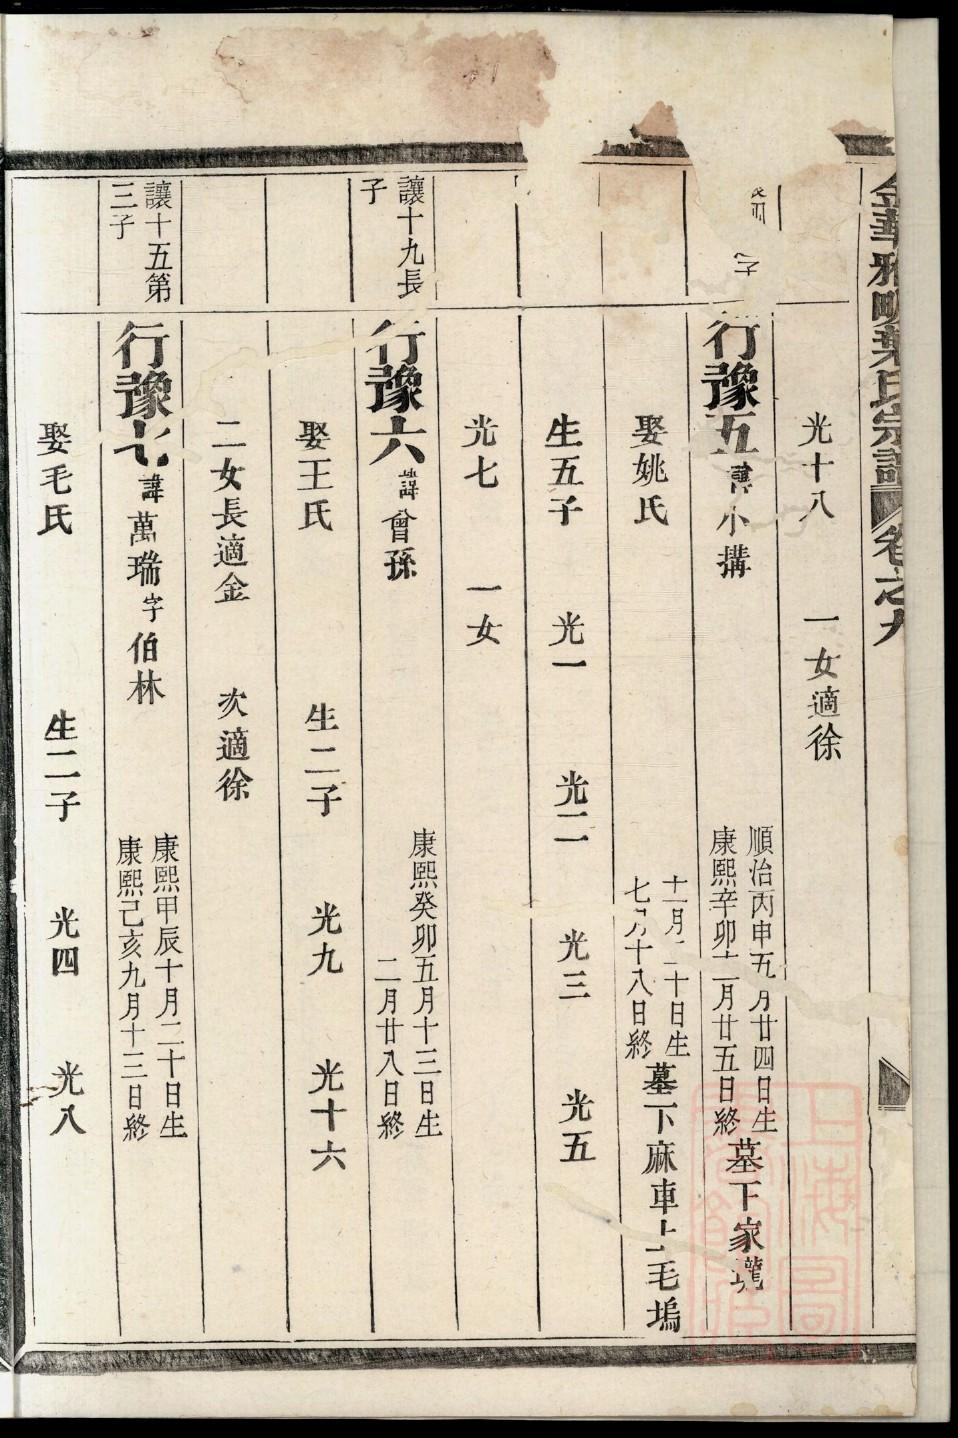 金華雅畈葉氏宗譜 卷之九
光十八 一女適徐
子
行豫五 諱小搆 順治丙申五月廿四日生 康熙辛卯十二月廿五日終 墓下家瓏
娶姚氏 十一月二十日生 七月十八日終 墓下麻車上毛塢
生五子 光一 光二 光三 光五
光七 一女
讓十九長子
行豫六 諱曾孫 康熙癸卯五月十三日生 二月廿八日終
娶王氏 生二子 光九 光十六
二女長適金 次適徐
讓十五第三子
行豫七 諱萬瑞字伯林 康熙甲辰十月二十日生 康熙己亥九月十三日終
娶毛氏 生二子 光四 光八